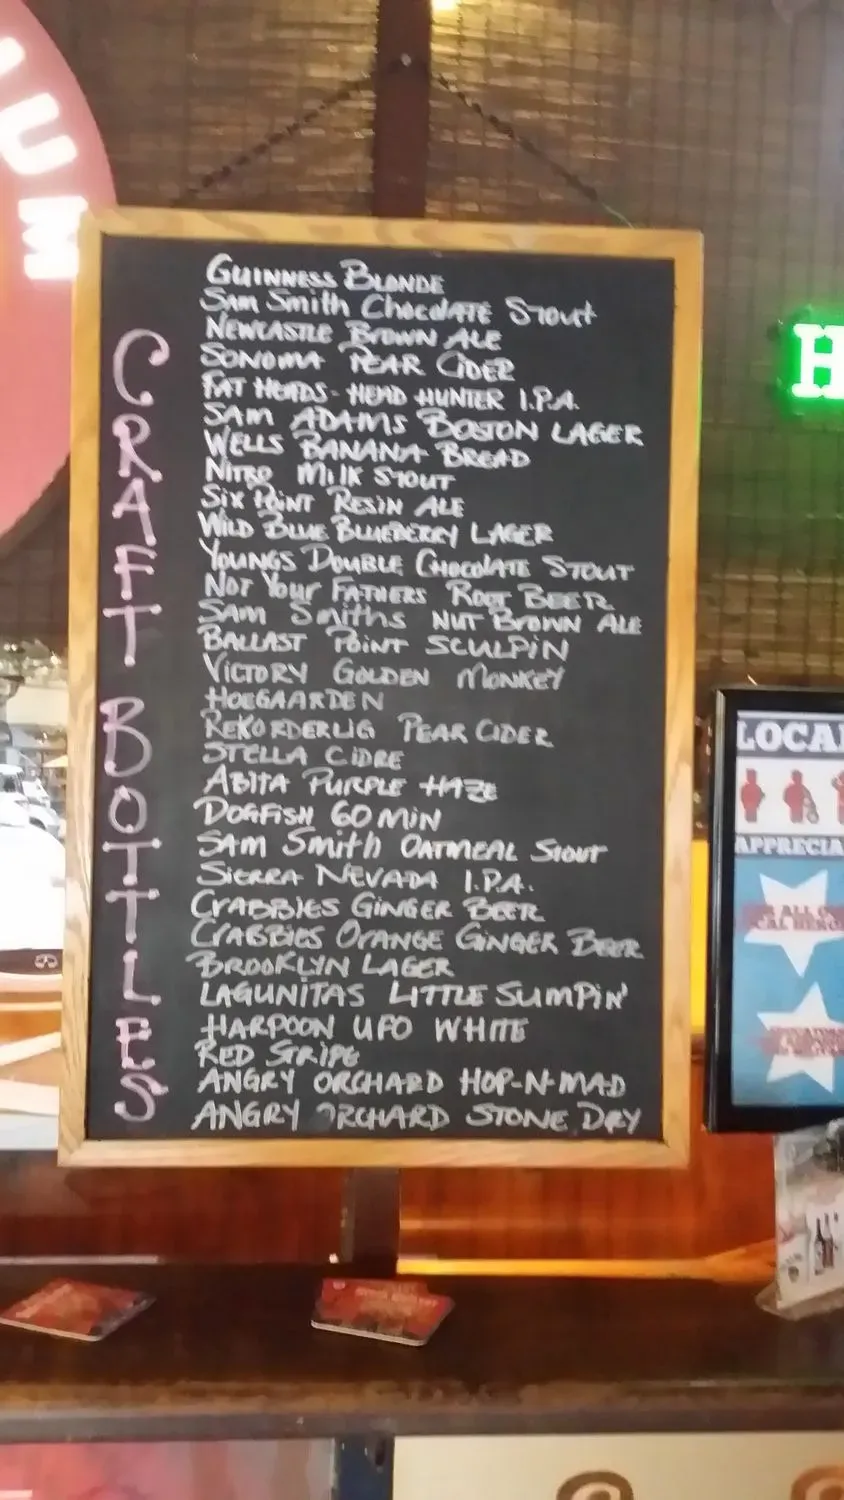 IUM
H
CRAFT BOTTLES
GUINNESS BLONDE
SAM SMITH CHOCOLATE STOUT
NEWCASTLE BROWN ALE
SONOMA PEAR CIDER
FAT HEADS - HEAD HUNTER I.P.A.
SAM ADAMS BOSTON LAGER
WELLS BANANA BREAD
NITRO MILK STOUT
SIX POINT RESIN ALE
WILD BLUE BLUEBERRY LAGER
YOUNGS DOUBLE CHOCOLATE STOUT
NOT YOUR FATHERS ROOT BEER
SAM SMITHS NUT BROWN ALE
BALLAST POINT SCULPIN
VICTORY GOLDEN MONKEY
HOEGAARDEN
REKORDERLIG PEAR CIDER
STELLA CIDRE
ABITA PURPLE HAZE
DOGFISH 60 MIN
SAM SMITH OATMEAL STOUT
SIERRA NEVADA I.P.A.
CRABBIES GINGER BEER
CRABBIES ORANGE GINGER BEER
BROOKLYN LAGER
LAGUNITAS LITTLE SUMPIN'
HARPOON UFO WHITE
RED STRIPE
ANGRY ORCHARD HOP-N-MAD
ANGRY ORCHARD STONE DRY
LOCAL
APPRECIA